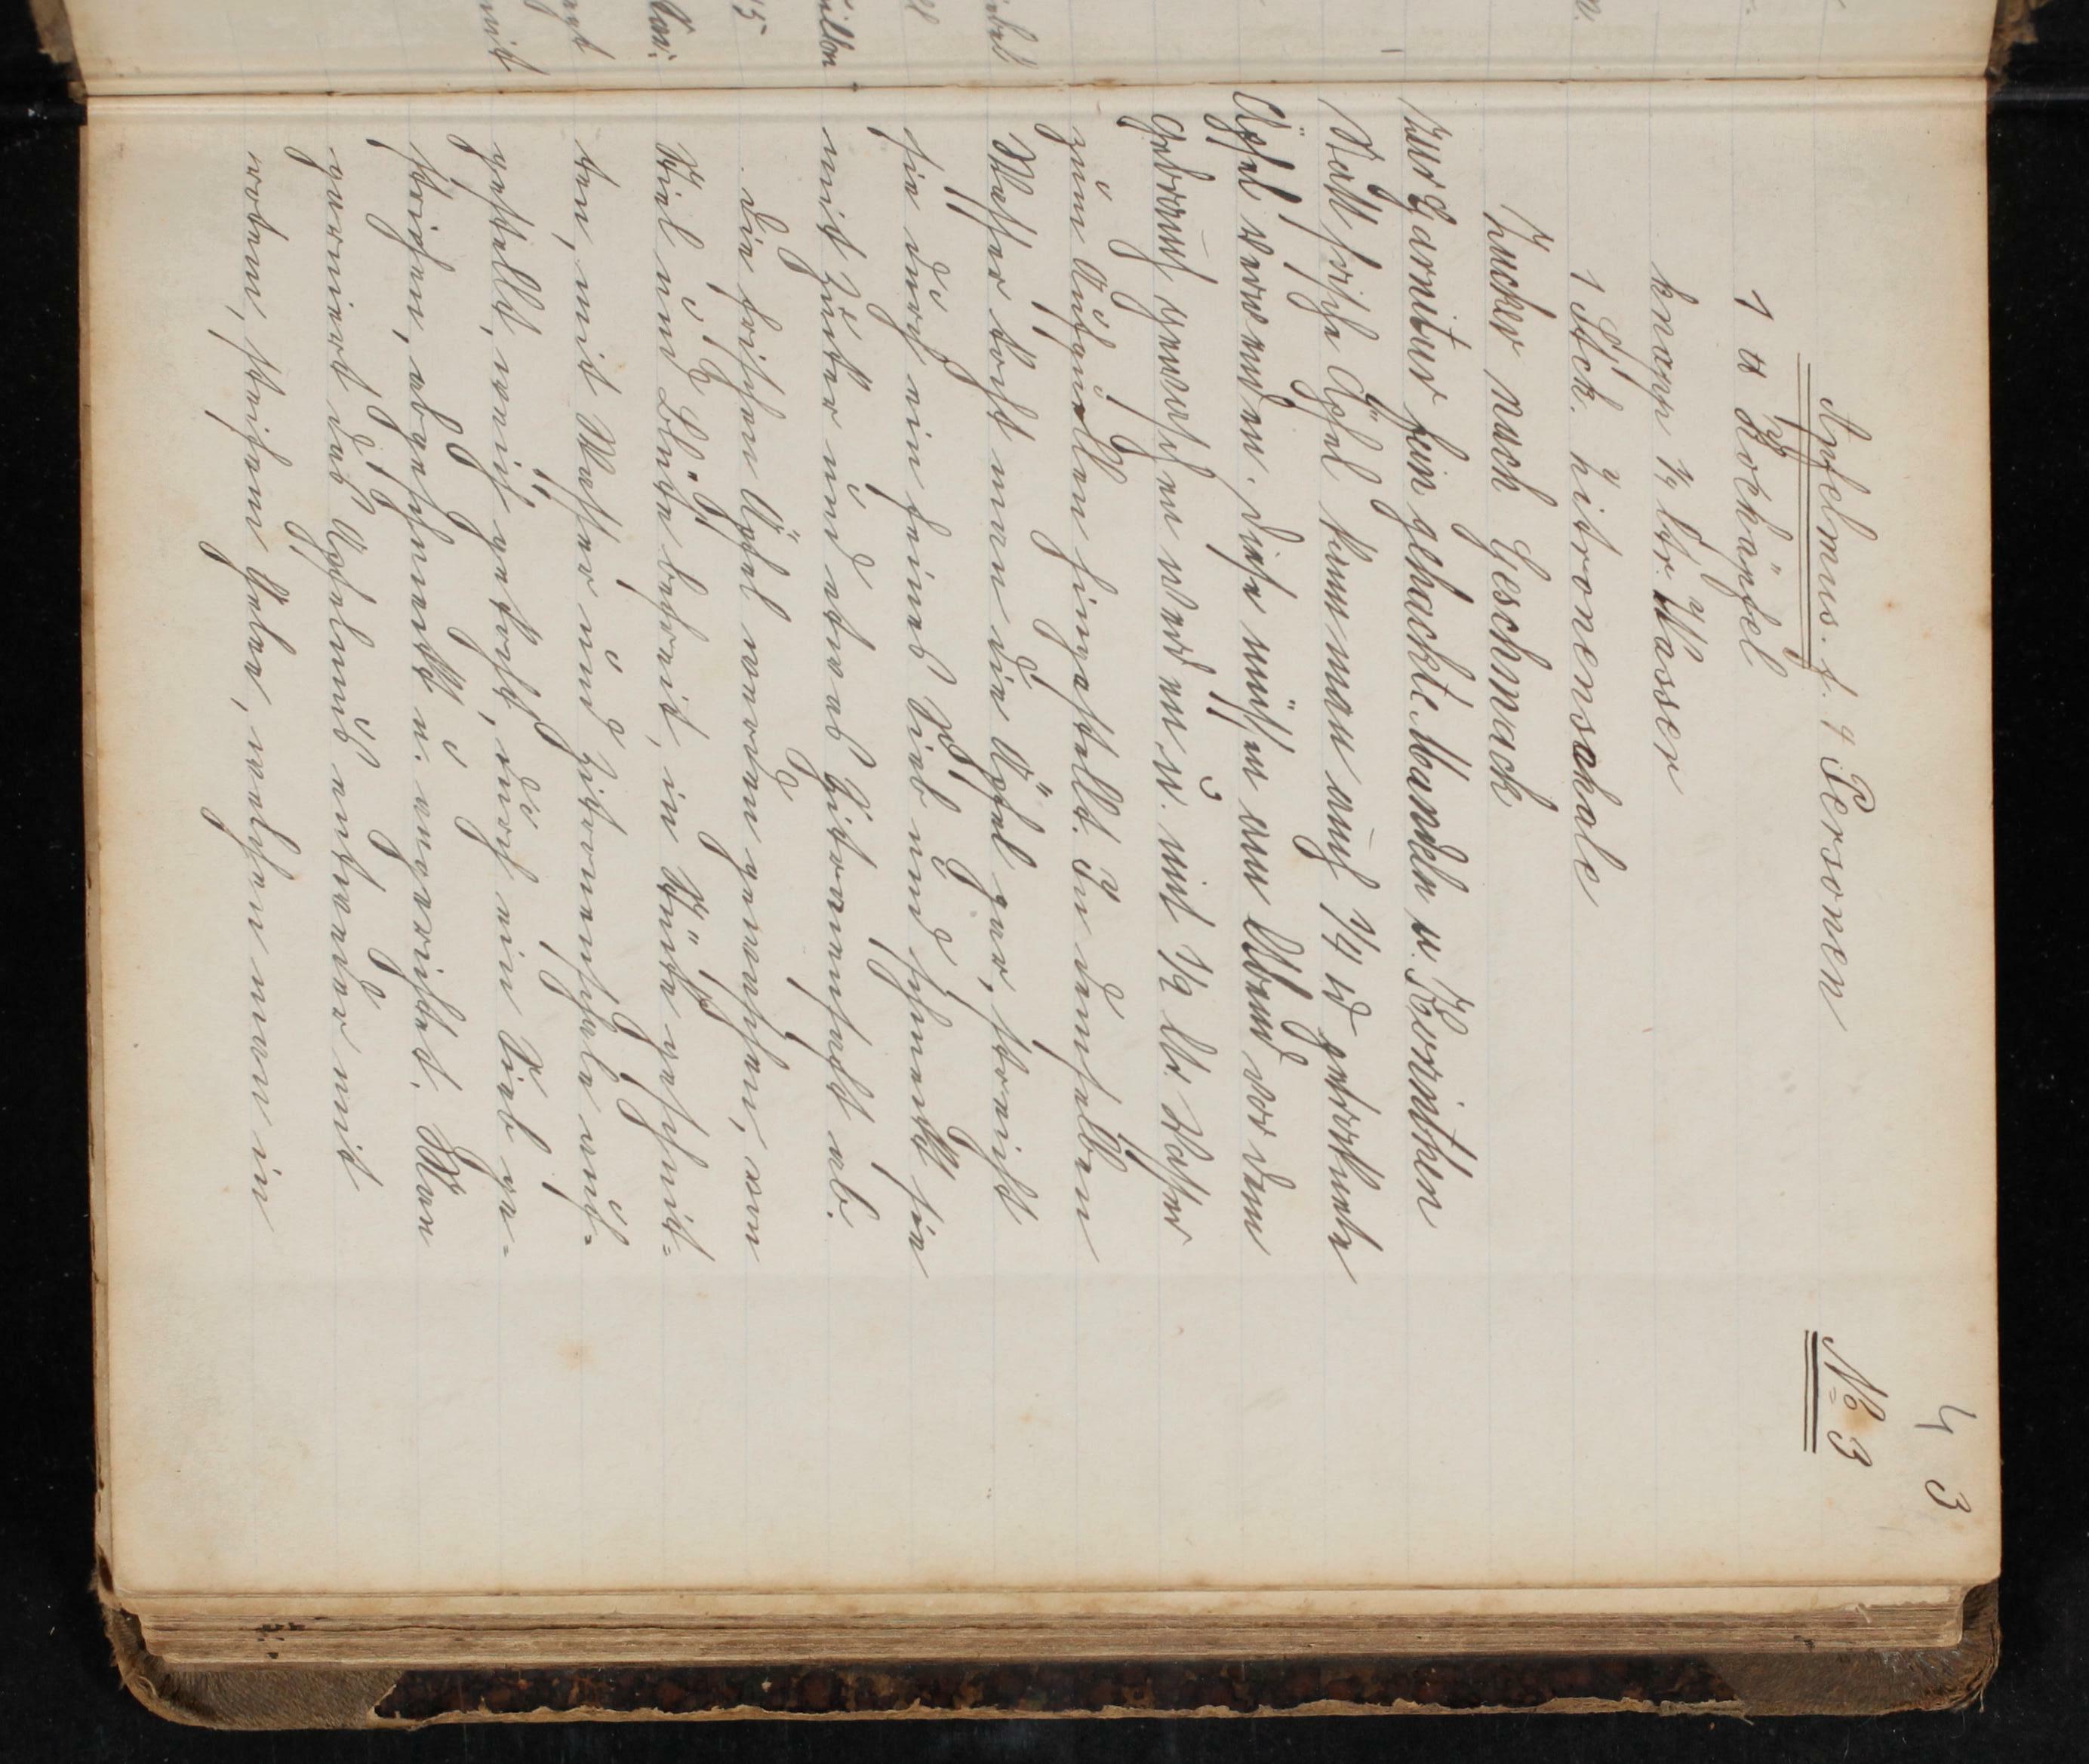 4 3
Apfelmus. f. 4 Personen № 3
1 ℔ Kochäpfel
knapp ½ ltr. Wasser
1 Stck. Zitronenschale
Zucker nach Geschmack
zur Garnitur fein gehackte Mandeln u. Korinthen
Statt frische Äpfel kann man auch ¼ ℔ getrocknete
Äpfel verwenden. Diese müssen am Abend vor dem
Gebrauch gewaschen werden u. mit ½ ltr. Wasser
zum Aufquellen hingestellt. In demselben
Wasser kocht man die Äpfel gar, streicht
sie durch ein feines Sieb und schmeckt sie
mit Zucker und etwas Zitronensaft ab.
Die frischen Äpfel werden gewaschen, von
Stiel und Blüte befreit, in Stücke geschnit=
ten, mit Wasser und Zitronenschale auf=
gestellt, weich gekocht, durch ein Sieb ge=
strichen, abgeschmeckt u. angerichtet. Man
garniert das Apfelmus entweder mit
rotem, steifem Gelee, welchen man in